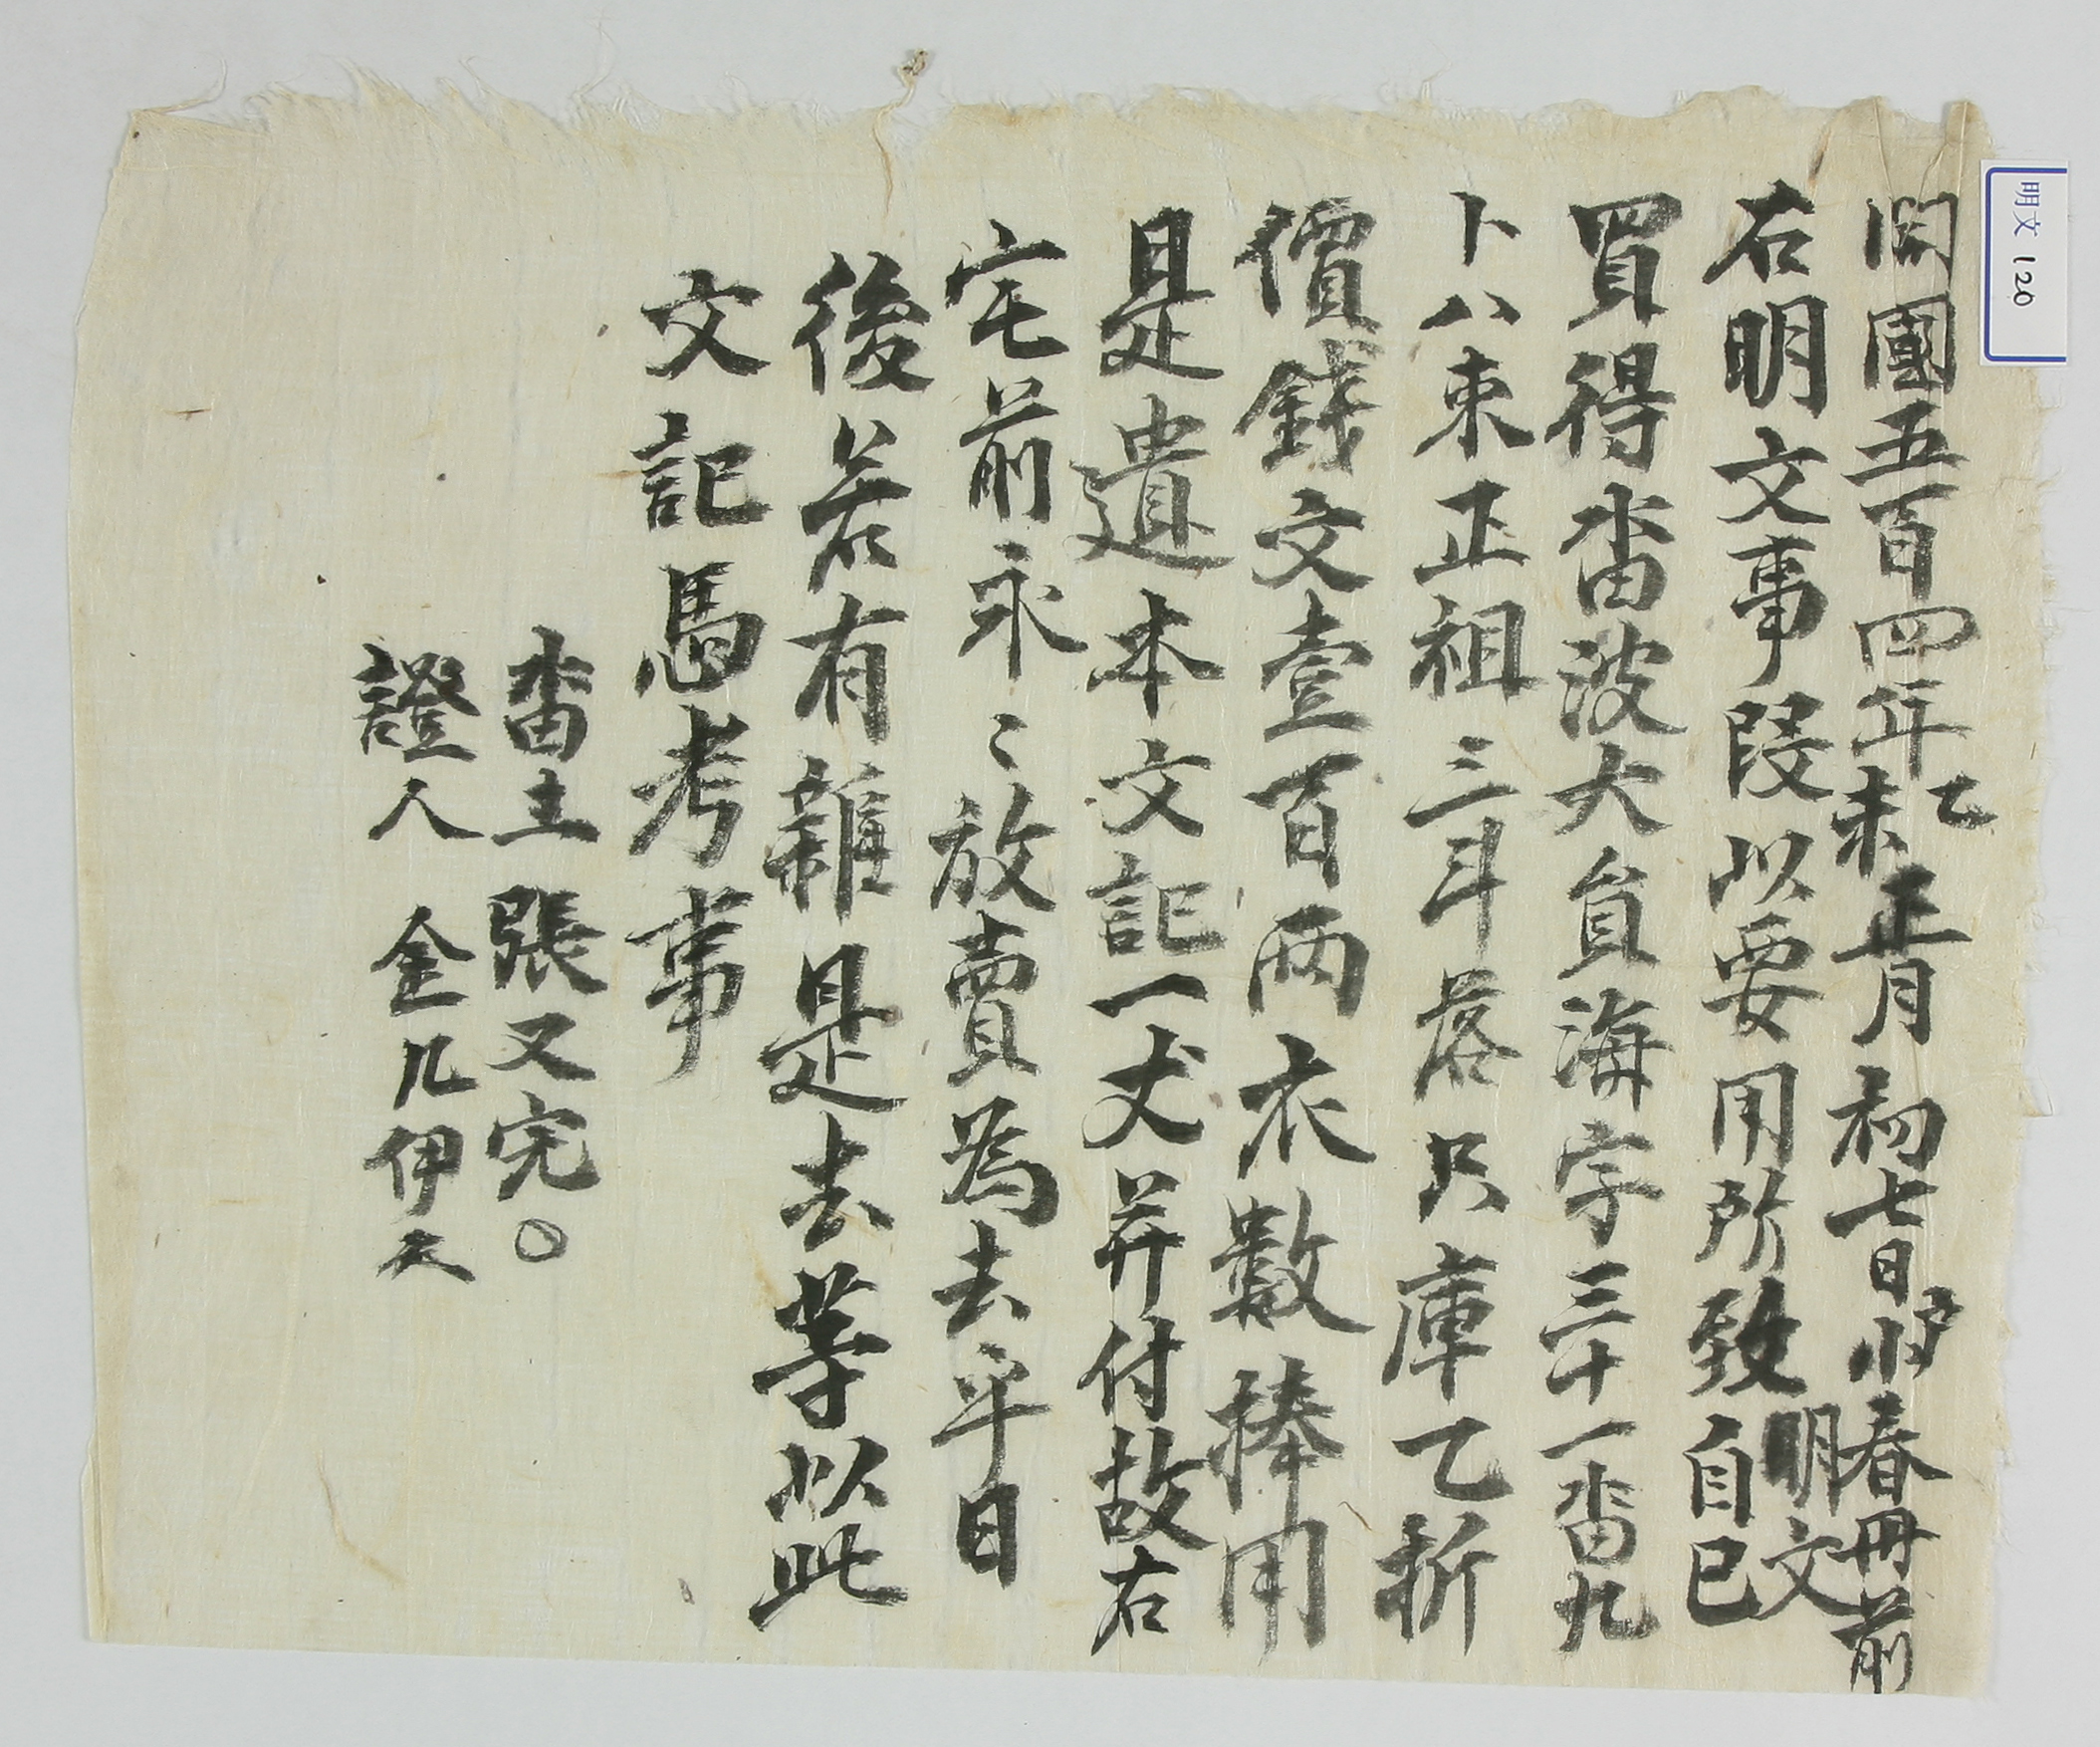 明文 120
開國五百四年乙未正月初七日 戶小春冊前
明文
右明文事段以要用所致自已
買得畓波大員海字三十一畓九
卜八束正祖三斗落只庫乙折
價錢文壹百兩衣數捧用
是遣本文記一丈幷付故右
宅前永〻放賣爲去乎日
後若有雜是去等以此
文記憑考事
畓主 張又完〇
證人 金几伊